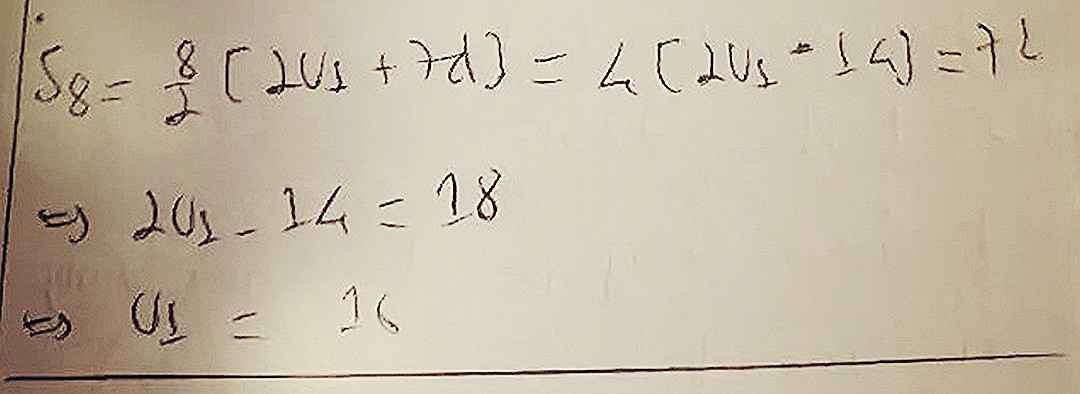 S₈ = 8/2 [2U₁ + 7d] = 4 [2U₁ - 14] = 72
⇒ 2U₁ - 14 = 18
⇒ U₁ = 16